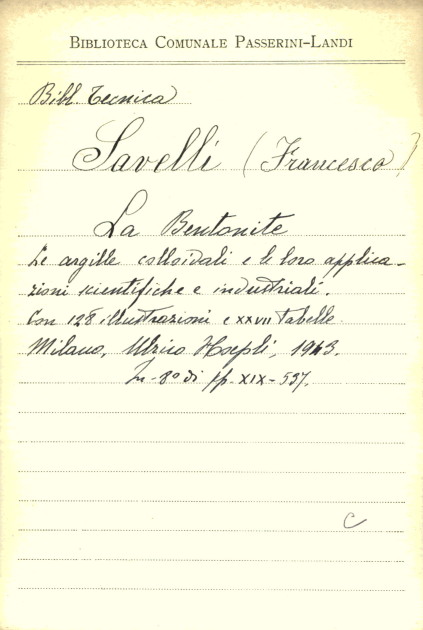 BIBLIOTECA COMUNALE PASSERINI-LANDI
Bibl. Tecnica
Savelli (Francesco)
La Bentonite
Le argille colloidali e le loro applica-
zioni scientifiche e industriali.
Con 128 illustrazioni e XXVII tabelle
Milano, Ulrico Hoepli, 1943.
In-8° di pp. XIX-537.
C